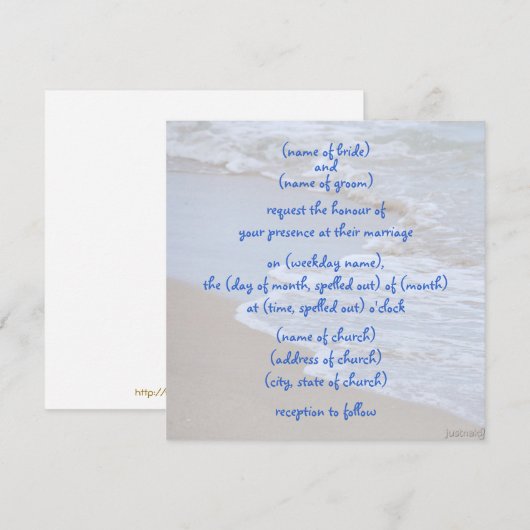 (name of bride)
and
(name of groom)
request the honour of
your presence at their marriage
on (weekday name),
the (day of month, spelled out) of (month)
at (time, spelled out) o'clock
(name of church)
(address of church)
(city, state of church)
reception to follow
http://